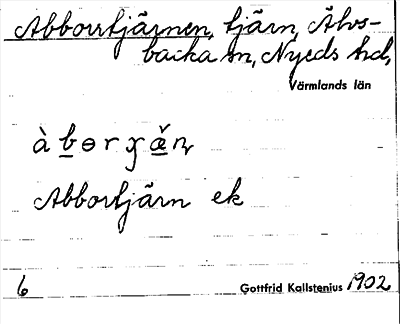 Abborrtjärnen, tjärn, Älvs-
backa sn, Nyeds hd,
Värmlands län
Abbortjärn ek
6 Gottfrid Kallstenius 1902